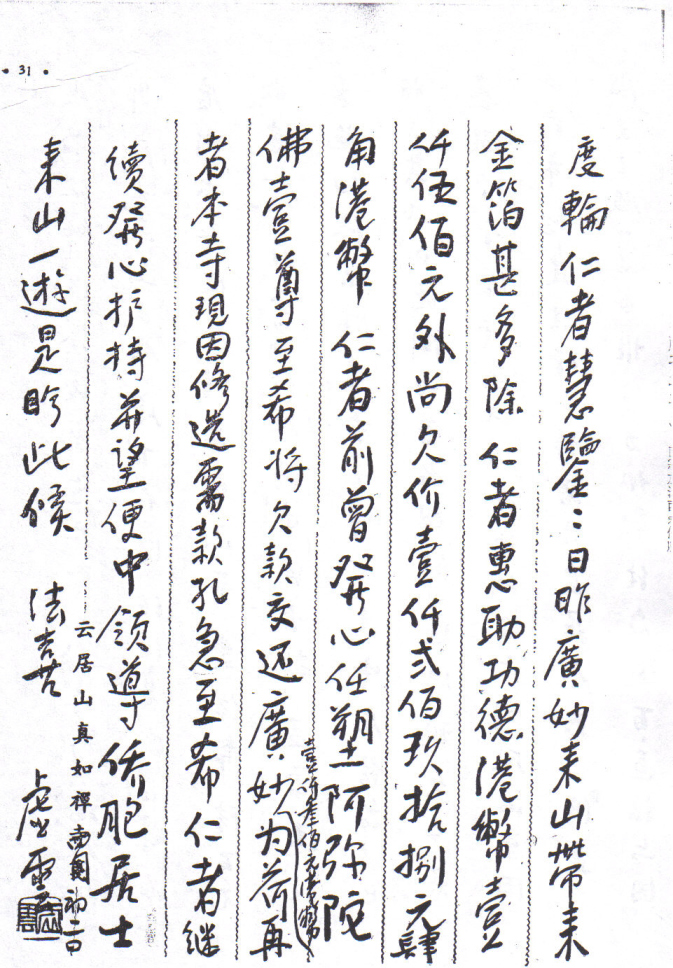 • 31 •
度輪仁者慧鑒:日昨廣妙来山帶来
金箔甚多除 仁者惠助功德港幣壹
仟伍佰元外尚欠价壹仟弍佰玖拾捌元肆
角港幣 仁者前曾發心任塑阿弥陀
佛壹尊至希将欠款交还廣妙为荷再
壹仟叁佰元港幣
者本寺現因修造需款孔急至希仁者継
續發心护持并望便中領導侨胞居士
来山一遊是盼此候 法喜
云居山真如禪寺 初二日
虛雲